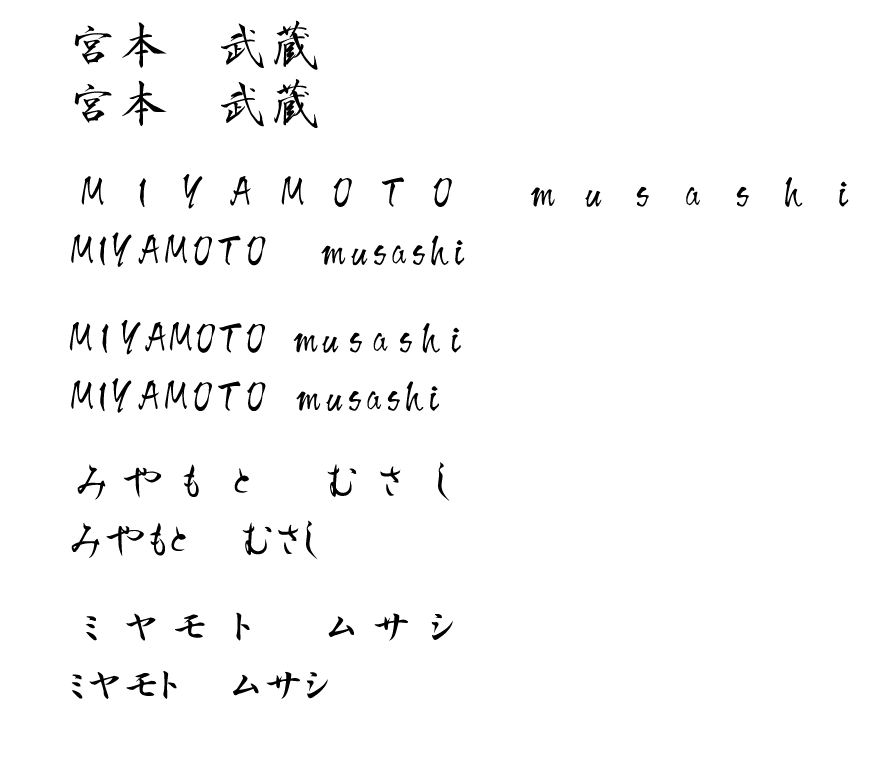 宮本　武蔵
宮本　武蔵
ＭＩＹＡＭＯＴＯ　ｍｕｓａｓｈｉ
MIYAMOTO　musashi
MIYAMOTO musashi
MIYAMOTO musashi
みやもと　むさし
みやもと　むさし
ミヤモト　ムサシ
ミヤモト　ムサシ